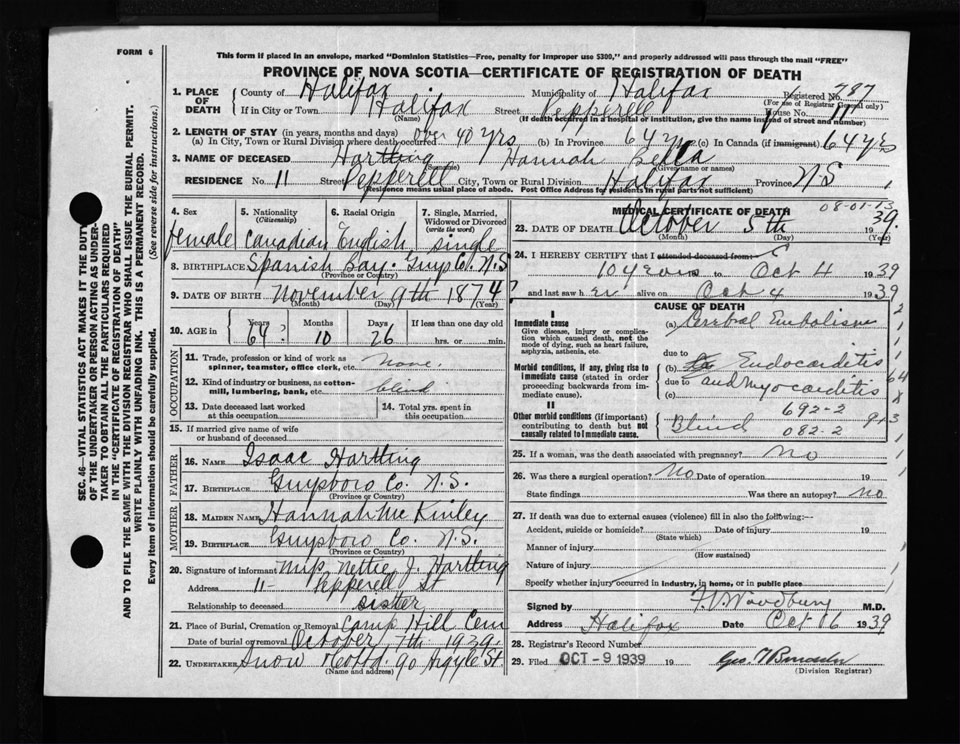 FORM 6
This form if placed in an envelope, marked "Dominion Statistics—Free, penalty for improper use $300," and properly addressed will pass through the mail "FREE"
PROVINCE OF NOVA SCOTIA—CERTIFICATE OF REGISTRATION OF DEATH
SEC. 46—VITAL STATISTICS ACT MAKES IT THE DUTY
OF THE UNDERTAKER OR PERSON ACTING AS UNDER-
TAKER TO OBTAIN ALL THE PARTICULARS REQUIRED
IN THE "CERTIFICATE OF REGISTRATION OF DEATH"
AND TO FILE THE SAME WITH THE DIVISION REGISTRAR WHO SHALL ISSUE THE BURIAL PERMIT.
WRITE PLAINLY WITH UNFADING INK. THIS IS A PERMANENT RECORD.
Every item of information should be carefully supplied. (See reverse side for instructions.)
1. PLACE OF DEATH County of Halifax Municipality of Halifax Registered No. 987
(For use of Registrar General only)
If in City or Town Halifax Street Pepperell House No. 11
(Name) (If death occurred in a hospital or institution, give the name instead of street and number)
2. LENGTH OF STAY (in years, months and days)
(a) In City, Town or Rural Division where death occurred over 40 yrs (b) In Province 64 yrs (c) In Canada (if immigrant) 64 yrs
3. NAME OF DECEASED Hartling Hannah Bella
(Surname) (Given name or names)
RESIDENCE No. 11 Street Pepperell City, Town or Rural Division Halifax Province N S
(Residence means usual place of abode. Post Office Address for residents in rural parts not sufficient)
4. Sex female
5. Nationality (Citizenship) Canadian
6. Racial Origin English
7. Single, Married, Widowed or Divorced (write the word) single
8. BIRTHPLACE Spanish Bay. Guys Co. N.S
(Province or Country)
9. DATE OF BIRTH November 9th 1874
(Month) (Day) (Year)
10. AGE in Years 64 Months 10 Days 26 If less than one day old
hrs. or min.
OCCUPATION
11. Trade, profession or kind of work as spinner, teamster, office clerk, etc. None.
12. Kind of industry or business, as cotton-mill, lumbering, bank, etc. blind
13. Date deceased last worked at this occupation
14. Total yrs. spent in this occupation
15. If married give name of wife or husband of deceased
FATHER
16. NAME Isaac Hartling
17. BIRTHPLACE Guysboro Co. N.S.
(Province or Country)
MOTHER
18. MAIDEN NAME Hannah McKinley
19. BIRTHPLACE Guysboro Co. N.S.
(Province or Country)
20. Signature of informant Miss Nettie J. Hartling
Address 11 - Pepperell St
Relationship to deceased sister
21. Place of Burial, Cremation or Removal Camp Hill Cem
Date of burial or removal October 7th 1939.
22. UNDERTAKER Snow 90 Argyle St.
(Name and address)
MEDICAL CERTIFICATE OF DEATH
08-01-13
23. DATE OF DEATH October 5th 1939.
(Month) (Day) (Year)
24. I HEREBY CERTIFY that I attended deceased from:
10 years to Oct 4 1939
and last saw her alive on Oct 4 1939
CAUSE OF DEATH
I
Immediate cause
Give disease, injury or complication which caused death, not the mode of dying, such as heart failure, asphyxia, asthenia, etc.
(a) Cerebral Embolism
due to
Morbid conditions, if any, giving rise to immediate cause (stated in order proceeding backwards from immediate cause).
(b) Endocarditis
due to and Myocarditis
(c)
II
Other morbid conditions (if important) contributing to death but not causally related to immediate cause.
692-2
Blind 082-2
25. If a woman, was the death associated with pregnancy? No
26. Was there a surgical operation? No Date of operation 19
State findings Was there an autopsy? no
27. If death was due to external causes (violence) fill in also the following:—
Accident, suicide or homicide? Date of injury 19
(State which)
Manner of injury
(How sustained)
Nature of injury
Specify whether injury occurred in industry, in home, or in public place
Signed by F.V. Woodbury M.D.
Address Halifax Date Oct 6 1939
28. Registrar's Record Number
29. Filed OCT - 9 1939 19
(Division Registrar)